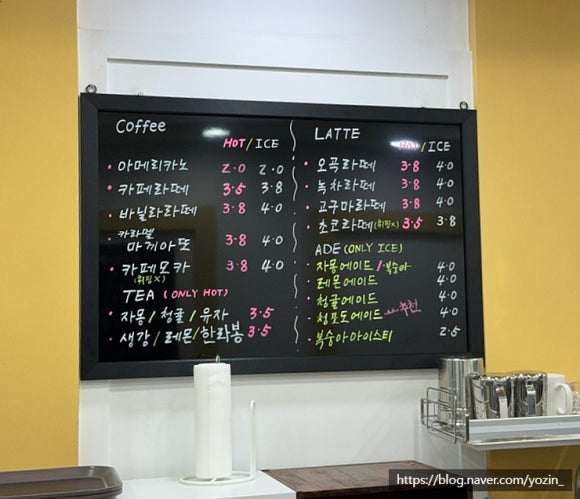 Coffee
HOT / ICE
• 아메리카노 2.0 2.0
• 카페라떼 3.5 3.8
• 바닐라라떼 3.8 4.0
• 카라멜
마끼아또 3.8 4.0
• 카페모카 3.8 4.0
(휘핑X)
TEA (ONLY HOT)
• 자몽 / 청귤 / 유자 3.5
• 생강 / 레몬 / 한라봉 3.5
LATTE
HOT / ICE
• 오곡라떼 3.8 4.0
• 녹차라떼 3.8 4.0
• 고구마라떼 3.8 4.0
• 초코라떼 (휘핑X) 3.5 3.8
ADE (ONLY ICE)
• 자몽에이드 / 복숭아 4.0
• 레몬에이드 4.0
• 청귤에이드 4.0
• 청포도에이드 추천 4.0
• 복숭아아이스티 2.5
https://blog.naver.com/yozin_